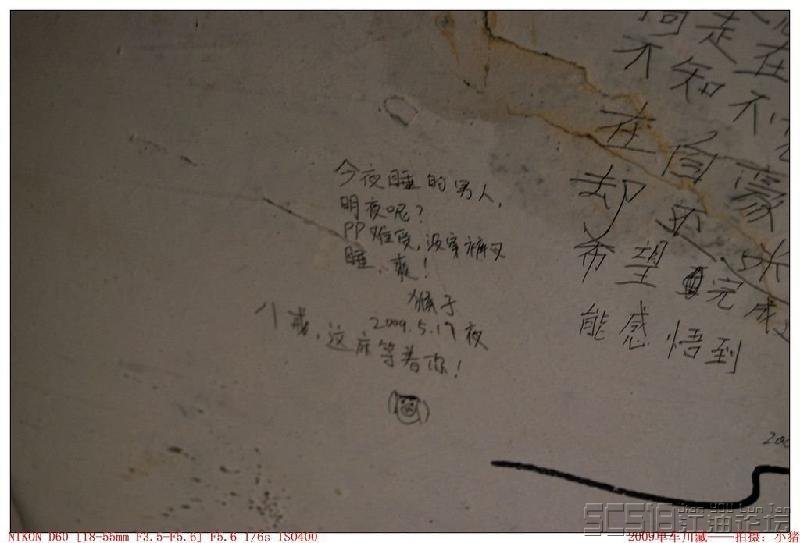 今夜睡的男人，
明夜呢？
PP难受，没穿裤又
睡，爽！
猴子
2009.5.17夜
八戒，这床等着你！
走在
不知不
在自豪
却还
希望完成
能感悟到
200
NIKON D60 [18-55mm F3.5-F5.6] F5.6 1/6s ISO400
2009单车川藏——拍摄：小猪
SCS18江油论坛
jiang you lun tan